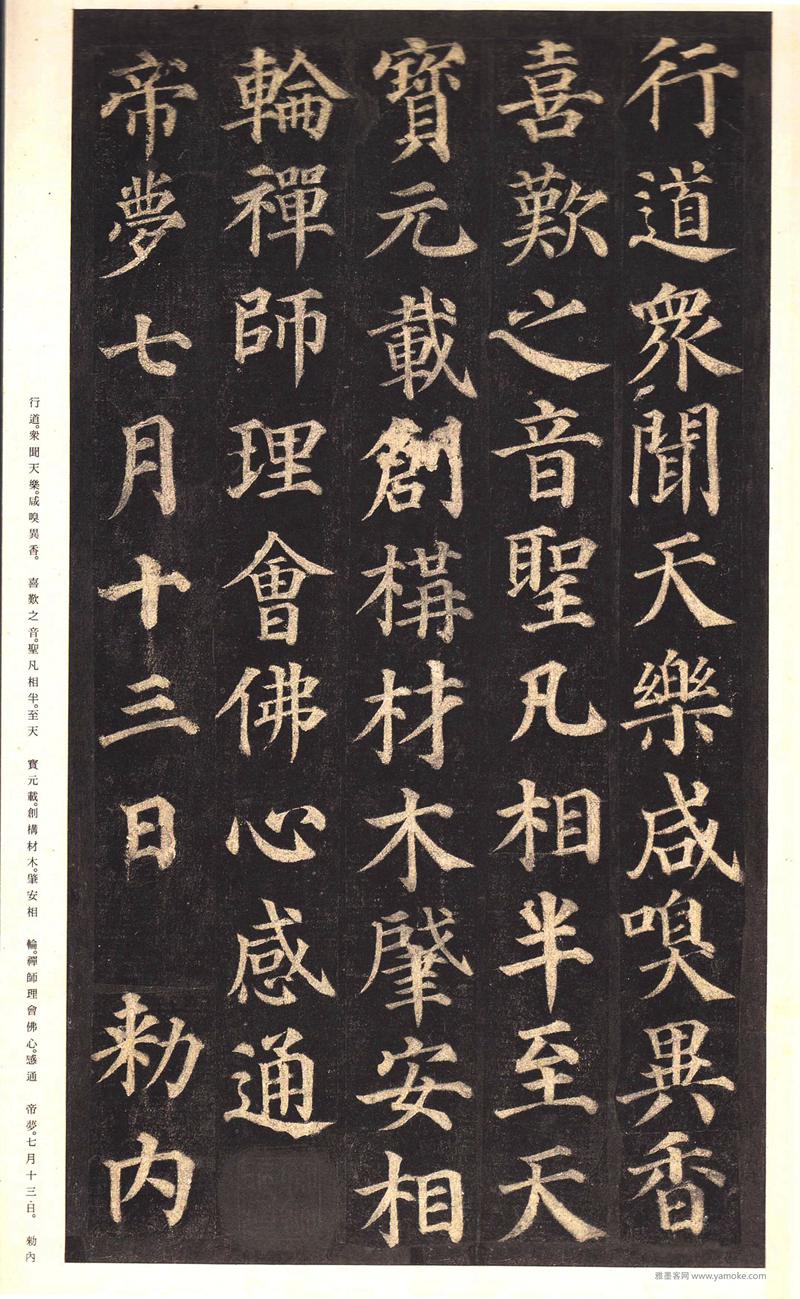 行道眾聞天樂咸嗅異香
喜歎之音聖凡相半至天
寶元載創構材木肇安相
輪禪師理會佛心感通
帝夢七月十三日 勅內
行道。衆聞天樂。咸嗅異香。 喜歎之音。聖凡相半。至天 寶元載。創構材木。肇安相 輪。禪師理會佛心。感通 帝夢。七月十三日。 勅內
雅墨客网 www.yamoke.com